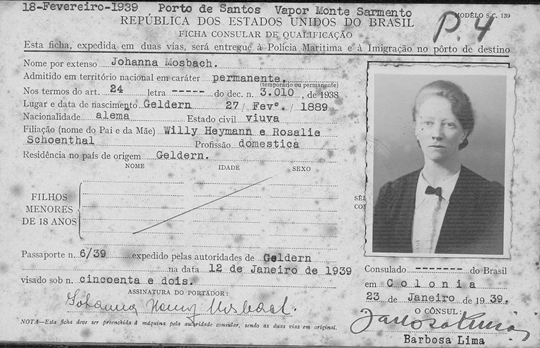 18-Fevereiro-1939 Porto de Santos Vapor Monte Sarmento
MODÊLO S.C. 139
P. 4
REPÚBLICA DOS ESTADOS UNIDOS DO BRASIL
FICHA CONSULAR DE QUALIFICAÇÃO
Esta ficha, expedida em duas vias, será entregue à Polícia Marítima e à Imigração no pôrto de destino
Nome por extenso Johanna Mosbach.
Admitido em território nacional em caráter permanente.
(temporário ou permanente)
Nos termos do art. 24 letra ----- do dec. n. 3.010, de 1938
Lugar e data de nascimento Geldern 27/ Fevº. / 1889
Nacionalidade alema Estado civil viuva
Filiação (nome do Pai e da Mãe) Willy Heymann e Rosalie
Schoenthal Profissão domestica
Residência no país de origem Geldern.
NOME IDADE SEXO
FILHOS
MENORES
DE 18 ANOS
Passaporte n. 6/39 expedido pelas autoridades de Geldern
na data 12 de Janeiro de 1939
visado sob n. cincoenta e dois.
ASSINATURA DO PORTADOR:
Johanna Mosbach
NOTA—Esta ficha deve ser preenchida à máquina pela autoridade consular, sendo as duas vias em original.
Consulado ------- do Brasil
em Colonia
23 de Janeiro de 1939.
O CÔNSUL:
Barbosa Lima